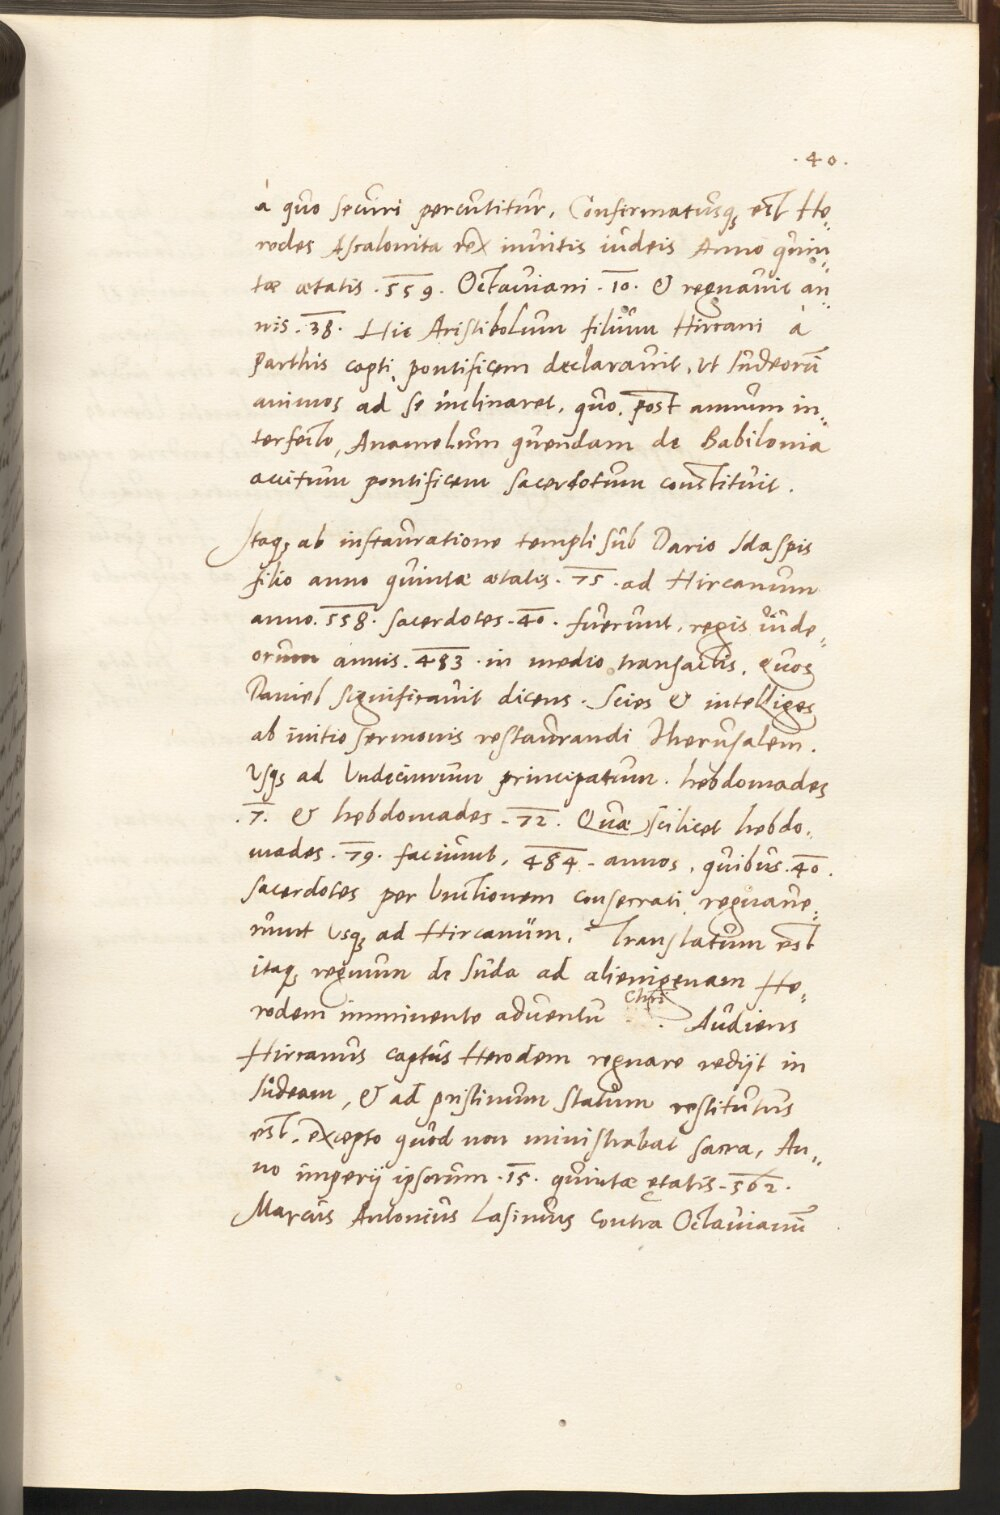 .40.
à quo securi percutitur, Confirmatusq; est He„
rodes Ascalonita rex inuitis iudeis Anno quin„
tæ ætatis .559. Octauiani .10. & regnauit an„
nis .38. Hic Aristibolum filium Hircani à
Parthis capti, pontificem declarauit, ut Iudeorũ
animos ad se inclinaret, quo, post annum in„
terfecto, Anamelum quendam de Babilonia
accitum pontificem sacerdotum constituit.
Itaq; ab instauratione templi sub Dario Idaspis
filio anno quintæ ætatis .75. ad Hircanum
anno .558. sacerdotes .40. fuerunt, regis iude„
orum annis .483. in medio transactis, quos
Daniel significauit dicens. Scies & intelliges
ab initio sermonis restaurandi Iherusalem.
Vsq; ad Vndecimum principatum. hebdomades
.7. & hebdomades .72. Quæ scilicet hebdo„
mades .79. faciunt, 484 annos, quibus .40.
sacerdotes per Vnctionem consecrati regnaue„
runt Vsq; ad Hircanum. Translatum est
itaq; regnum de Iuda ad alienigenam He„
rodem imminente aduentu Chri̅. Audiens
Hircanus captus Herodem regnare redijt in
Iudeam, & ad pristinum statum restitutus
est, excepto quod non ministrabat sacra, An„
no imperij ipsorum .15. quintæ ętatis .562.
Marcus Antonius Lasinius contra Octauianũ